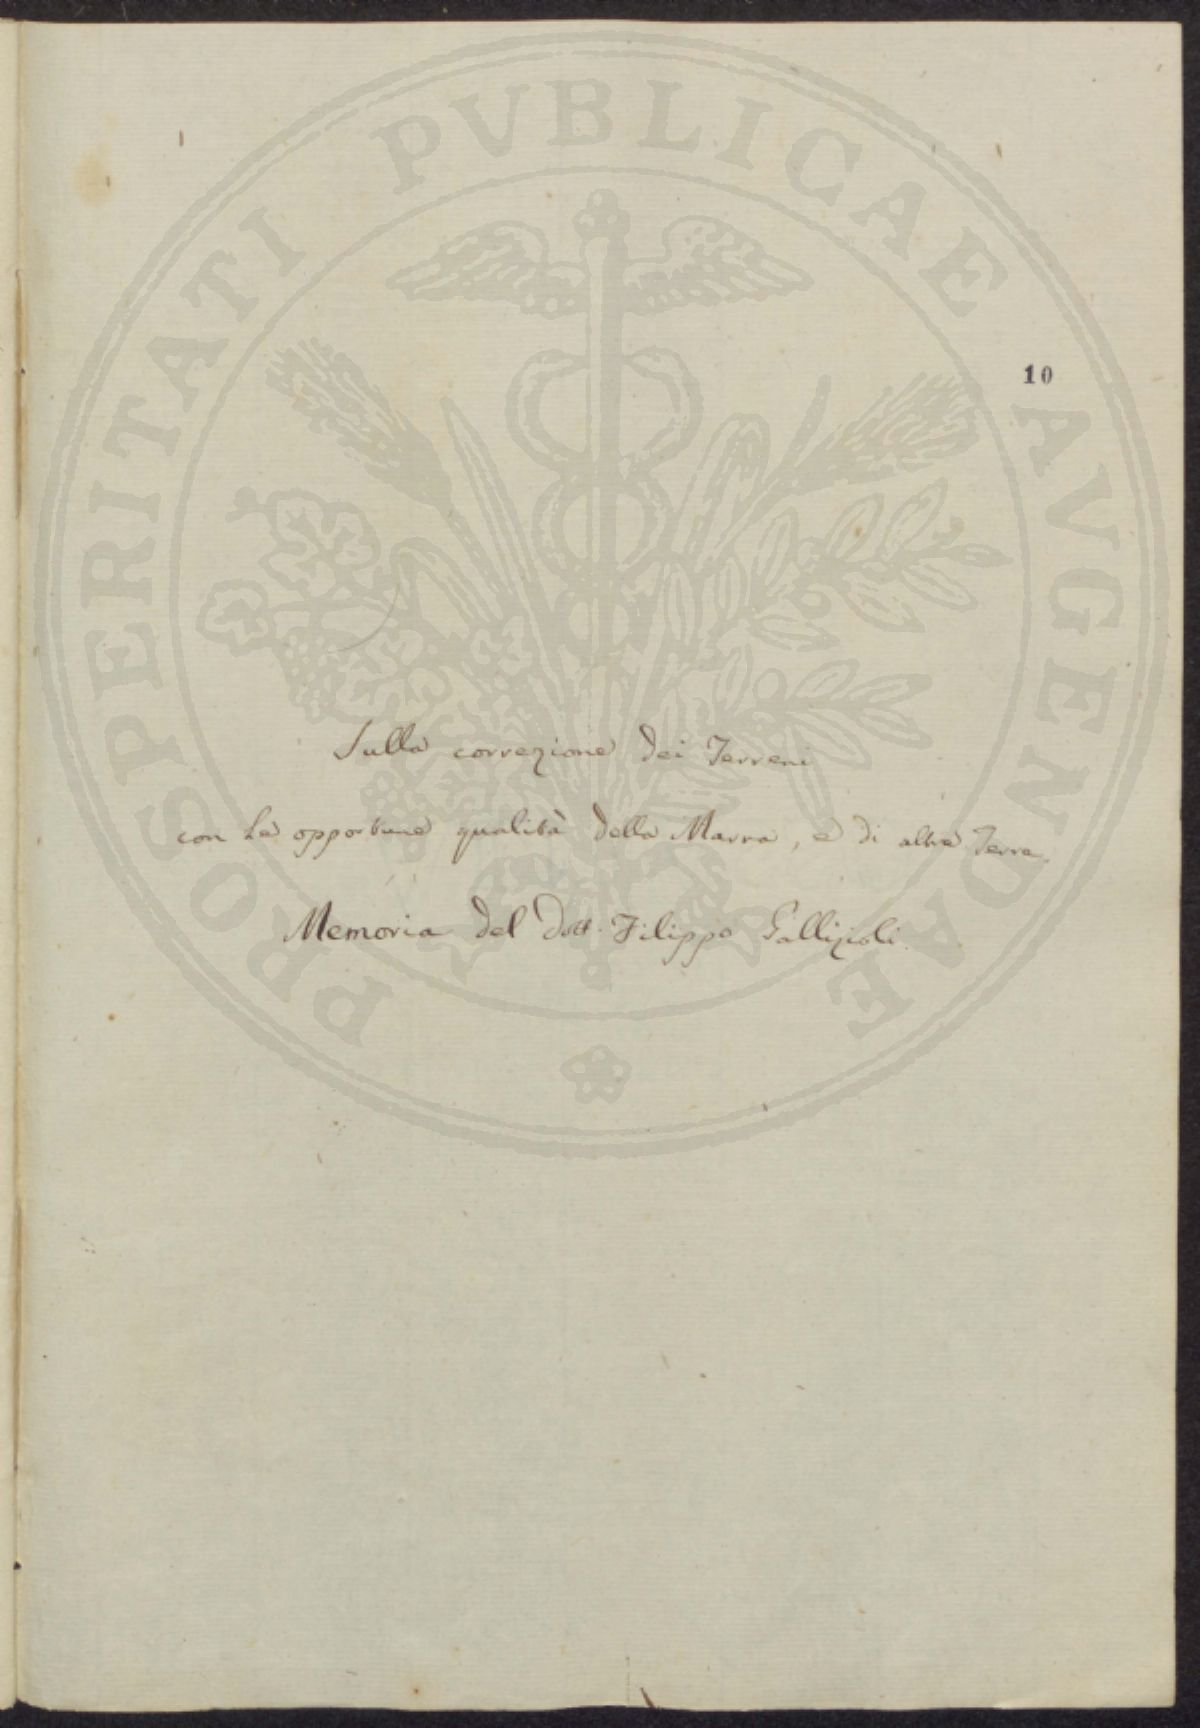 PROSPERITATI PVBLICAE AVGENDAE
10
Sulla correzione dei Terreni
con Le opportune qualità della Marna, e di altre Terre.
Memoria del Dott. Filippo Gallizioli.